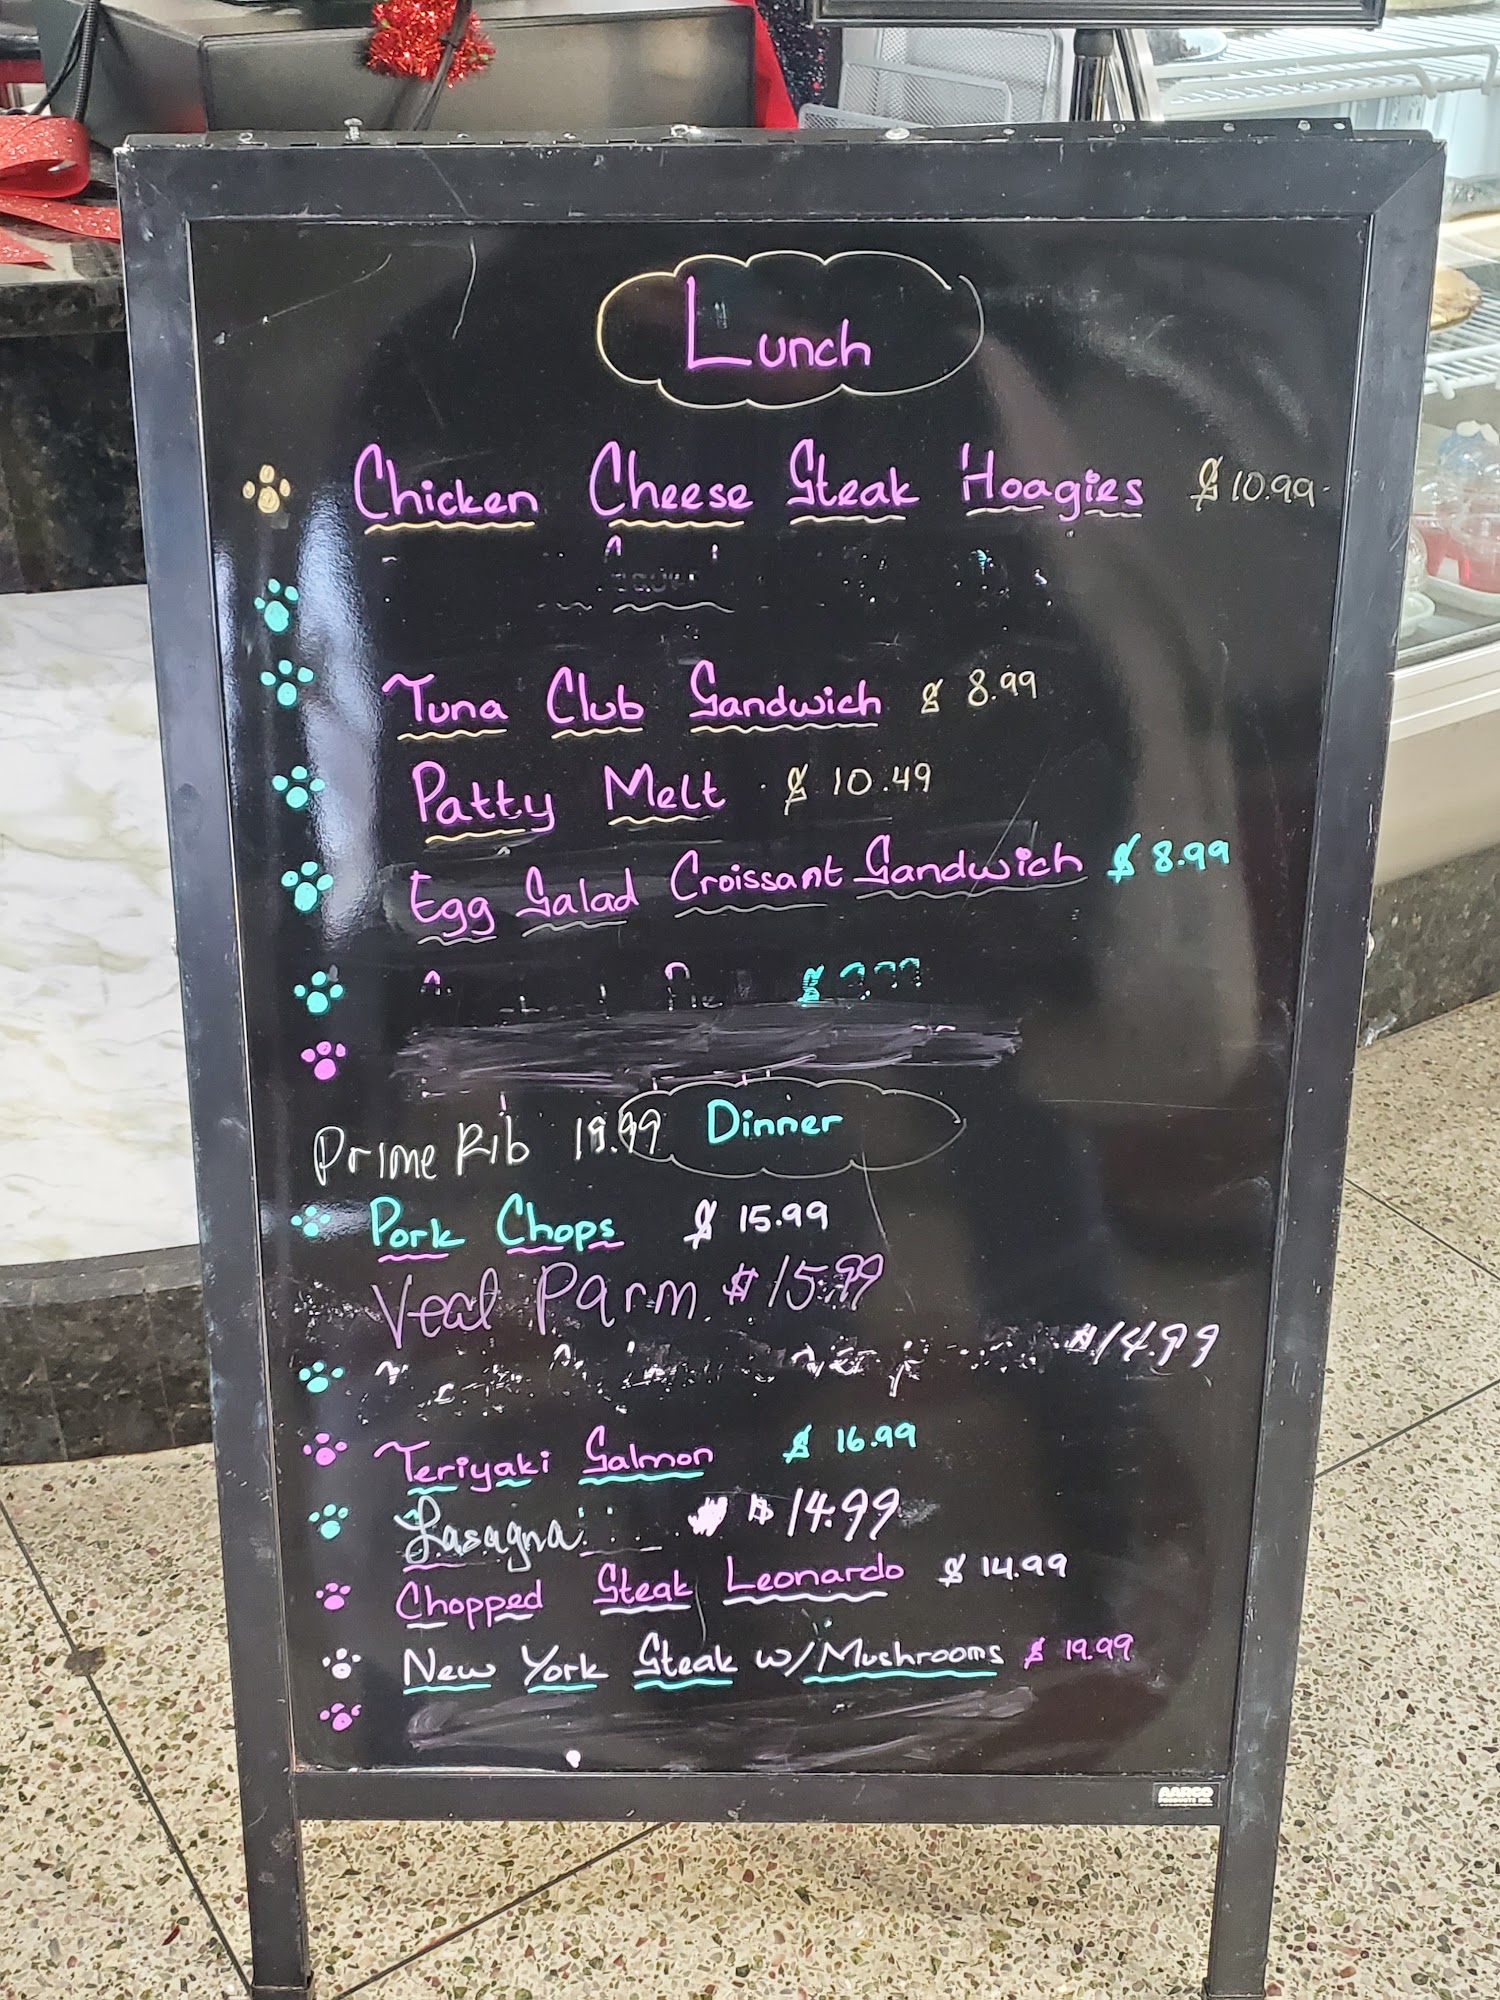 Lunch
Chicken Cheese Steak Hoagies $ 10.99
Tuna Club Sandwich $ 8.99
Patty Melt $ 10.49
Egg Salad Croissant Sandwich $ 8.99
$
Prime Rib 19.99 Dinner
Pork Chops $ 15.99
Veal Parm $ 15.99
$14.99
Teriyaki Salmon $ 16.99
Lasagna $ 14.99
Chopped Steak Leonardo $ 14.99
New York Steak w/Mushrooms $ 19.99
AARCO